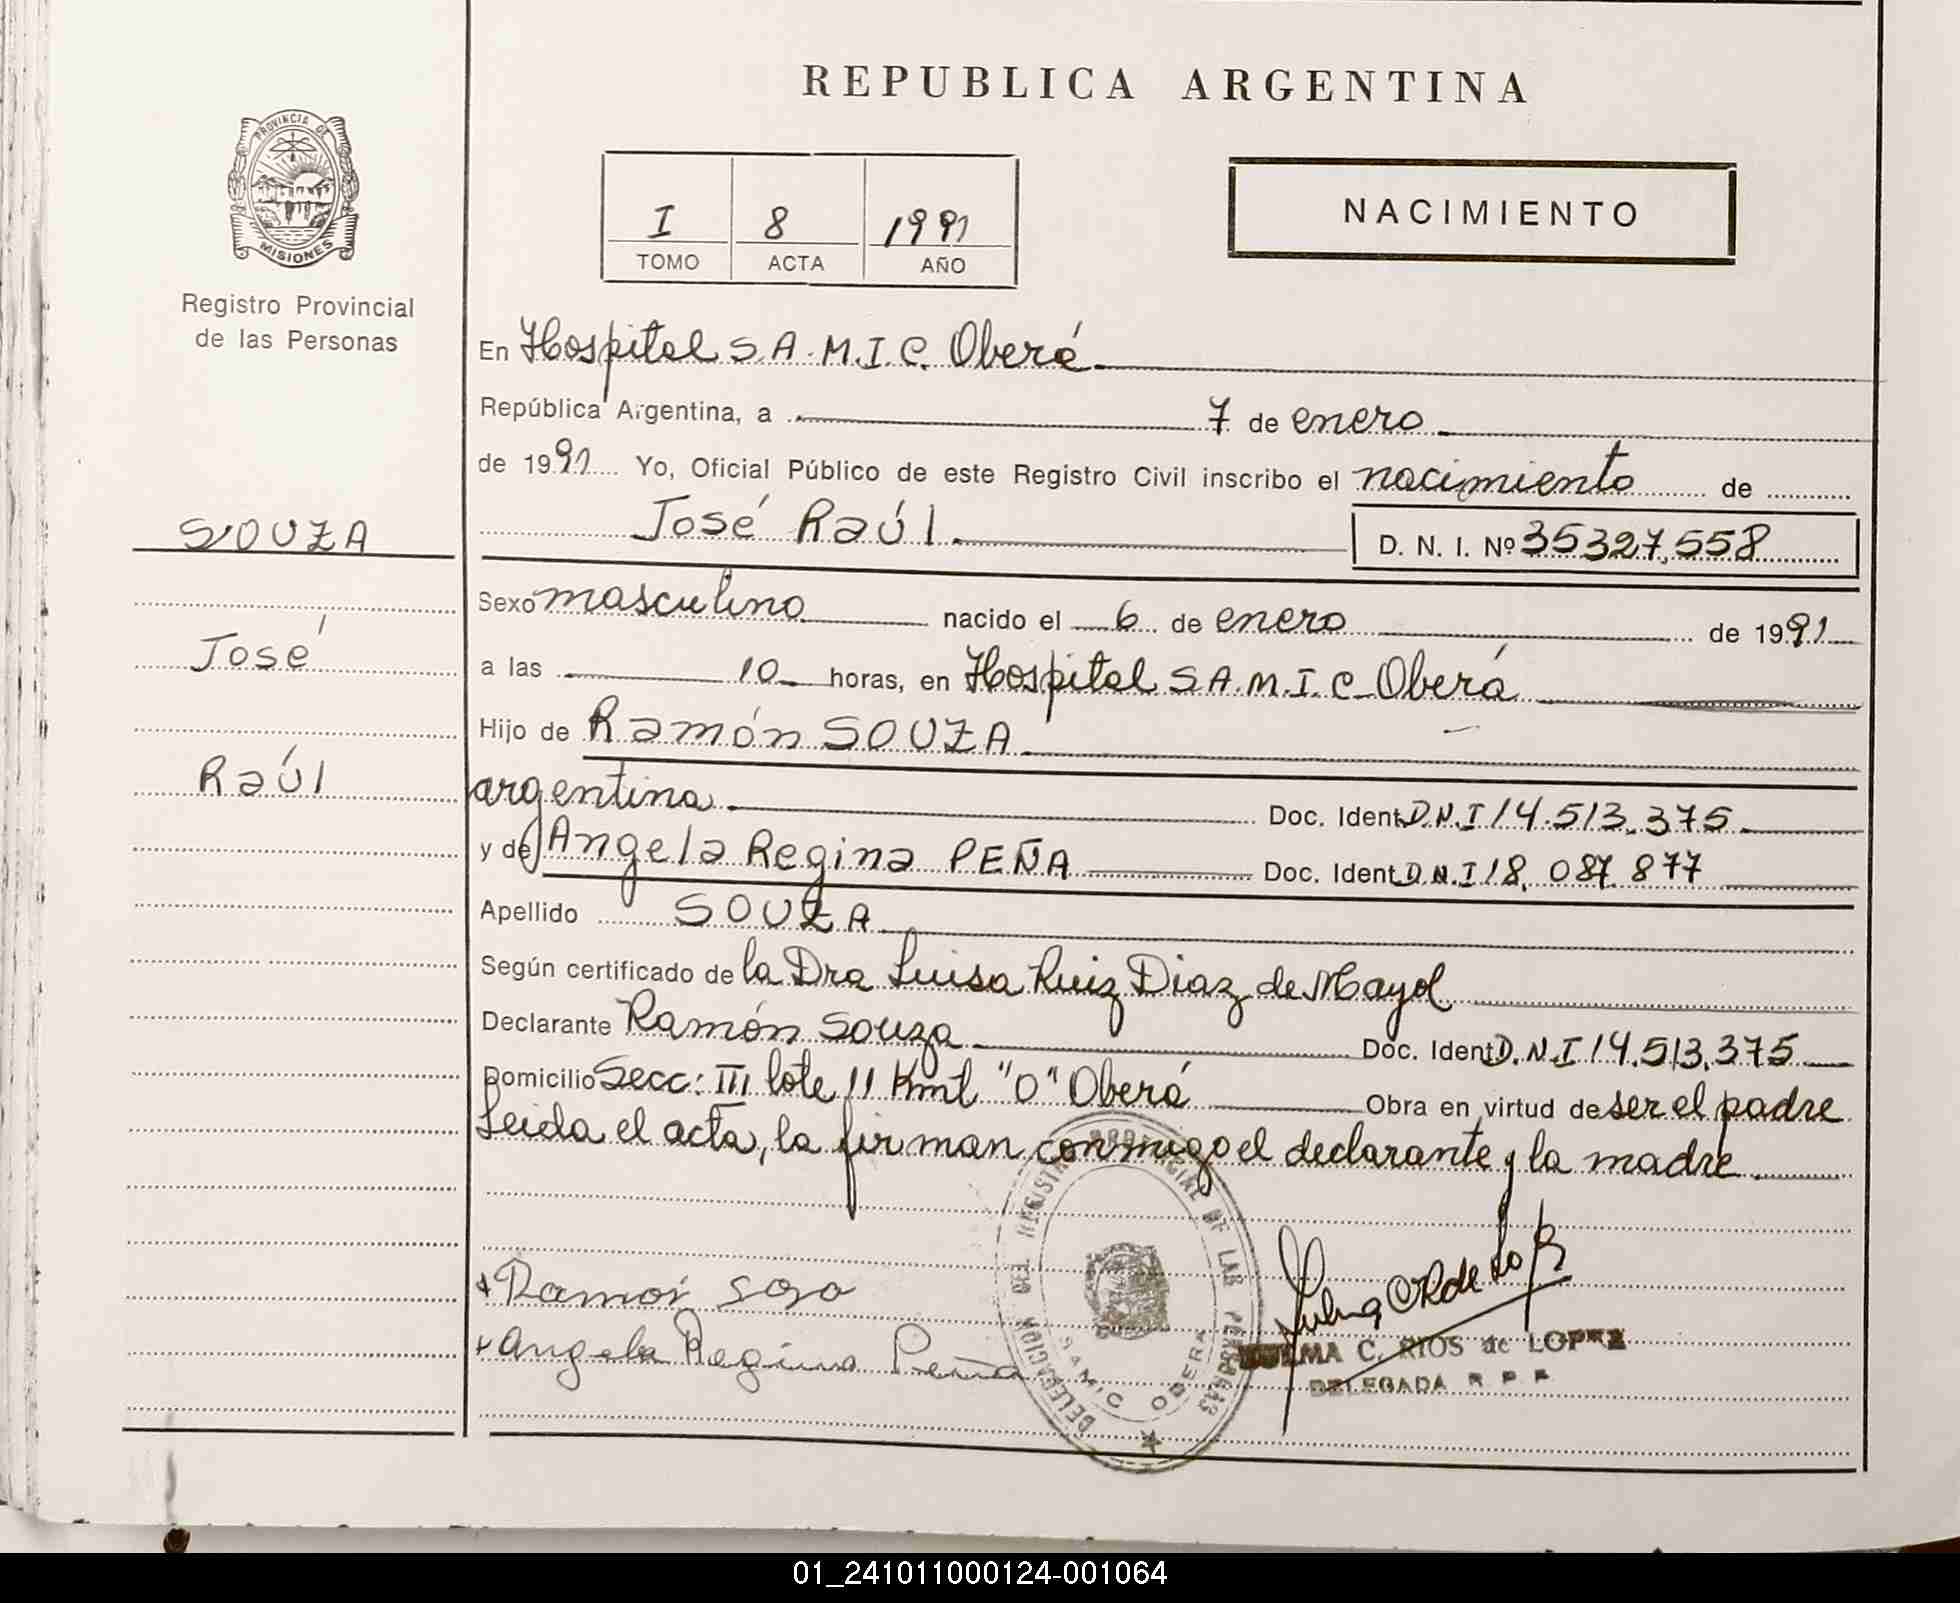 REPUBLICA ARGENTINA
PROVINCIA DE
MISIONES
Registro Provincial
de las Personas
I 8 1991
TOMO ACTA AÑO
NACIMIENTO
En Hospital S.A.M.I.C. Oberá
República Argentina, a 7 de enero
de 1991 Yo, Oficial Público de este Registro Civil inscribo el nacimiento de
José Raúl D. N. I. Nº 35327,558
SOUZA
José
Raúl
Sexo masculino nacido el 6 de enero de 1991
a las 10 horas, en Hospital S.A.M.I.C. Oberá
Hijo de Ramón SOUZA
argentina Doc. Ident D.N.I 14.513.375
y de Angela Regina PEÑA Doc. Ident D.N.I 18.087.877
Apellido SOUZA
Según certificado de la Dra Luisa Ruiz Diaz de Mayol
Declarante Ramón Souza Doc. Ident D.N.I 14.513.375
Domicilio Secc: III lote 11 Kmt "0" Oberá Obra en virtud de ser el padre
Leida el acta, la firman conmigo el declarante y la madre
Ramón
Angela Regina Peña
DELEGACION DEL REGISTRO PROVINCIAL DE LAS PERSONAS
SAMIC OBERA
C. RIOS de LOPEZ
DELEGADA R P P
01_241011000124-001064